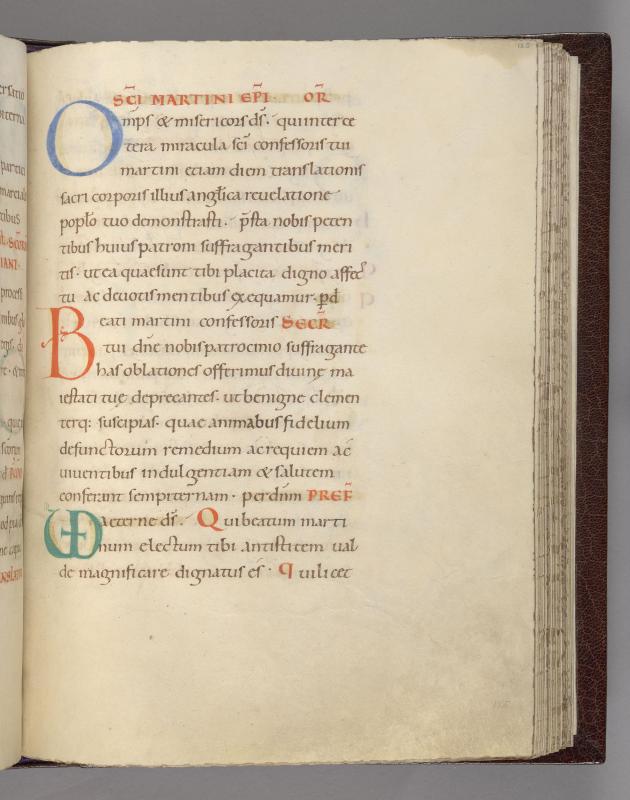 SC̄I MARTINI EP̄I OR̄
Omp̄s & misericors ds̄. qui inter ce
tera miracula sc̄i confessoris tui
martini etiam diem translationis
sacri corporis illius anglica reuelatione
poplo tuo demonstrasti. p̄sta nobis peten
tibus huius patroni suffragantibus meri
tis. ut ea quae sunt tibi placita digno affec
tu ac deuotis mentibus exequamur. pd̄
Beati martini confessoris SECR̄
tui dn̄e nobis patrocinio suffragante
has oblationes offerimus diuinę ma
iestati tuę deprecantes. ut benigne clemen
terq: suscipias. quae animabus fidelium
defunctorum remedium ac requiem ac
uiuentibus indulgentiam & salutem
conferant sempiternam. per dn̄m PREF̄
VD aeterne ds̄. Qui beatum marti
num electum tibi antistitem ual
de magnificare dignatus es. qui licet